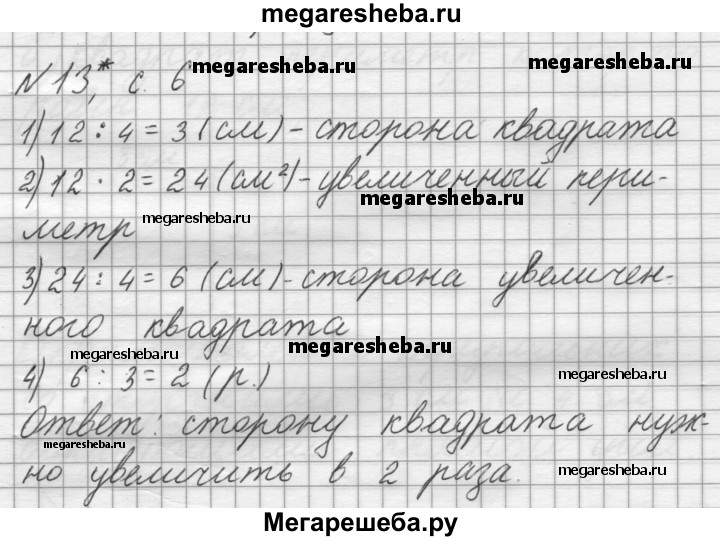 megaresheba.ru
№ 13,* с. 6 megaresheba.ru megaresheba.ru
1) 12 : 4 = 3 (см) - сторона квадрата
2) 12 · 2 = 24 (см²) - увеличенный пери-
megaresheba.ru
метр megaresheba.ru
3) 24 : 4 = 6 (см) - сторона увеличен-
megaresheba.ru
ного квадрата
megaresheba.ru megaresheba.ru
4) 6 : 3 = 2 (р.) megaresheba.ru
Ответ: сторону квадрата нуж-
megaresheba.ru
но увеличить в 2 раза. megaresheba.ru
Мегарешеба.ру